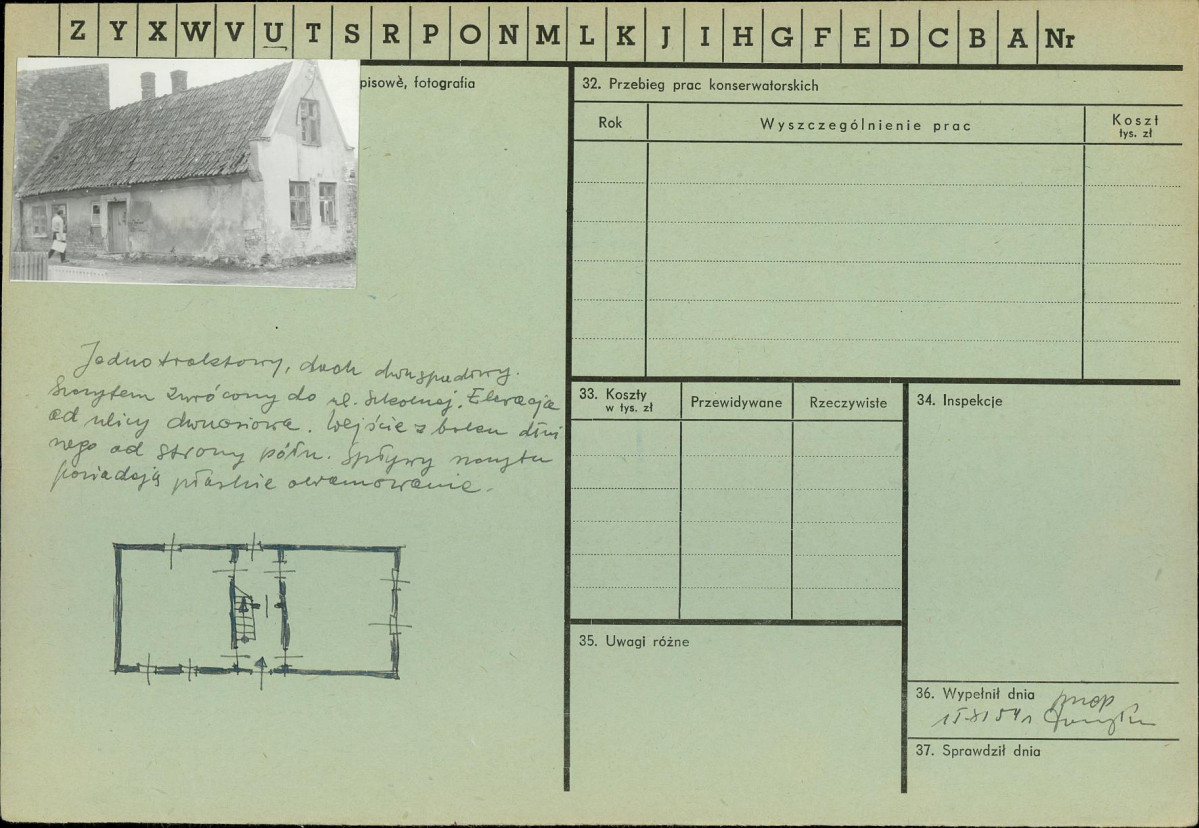 Z Y X W V U T S R P O N M L K J I H G F E D C B A Nr
pisowè, fotografia
Jednotraktowy, dach dwuspadowy.
Szczytem zwrócony do ul. Szkolnej. Elewacja
od ulicy dwuosiowa. Wejście z boku dłuż
nego od strony półn. Spływy szczytu
posiadają płaskie obramowanie.
32. Przebieg prac konserwatorskich
Rok
Wyszczególnienie prac
Koszt
tys. zł
33. Koszty
w tys. zł
Przewidywane
Rzeczywiste
34. Inspekcje
35. Uwagi różne
36. Wypełnił dnia
37. Sprawdził dnia